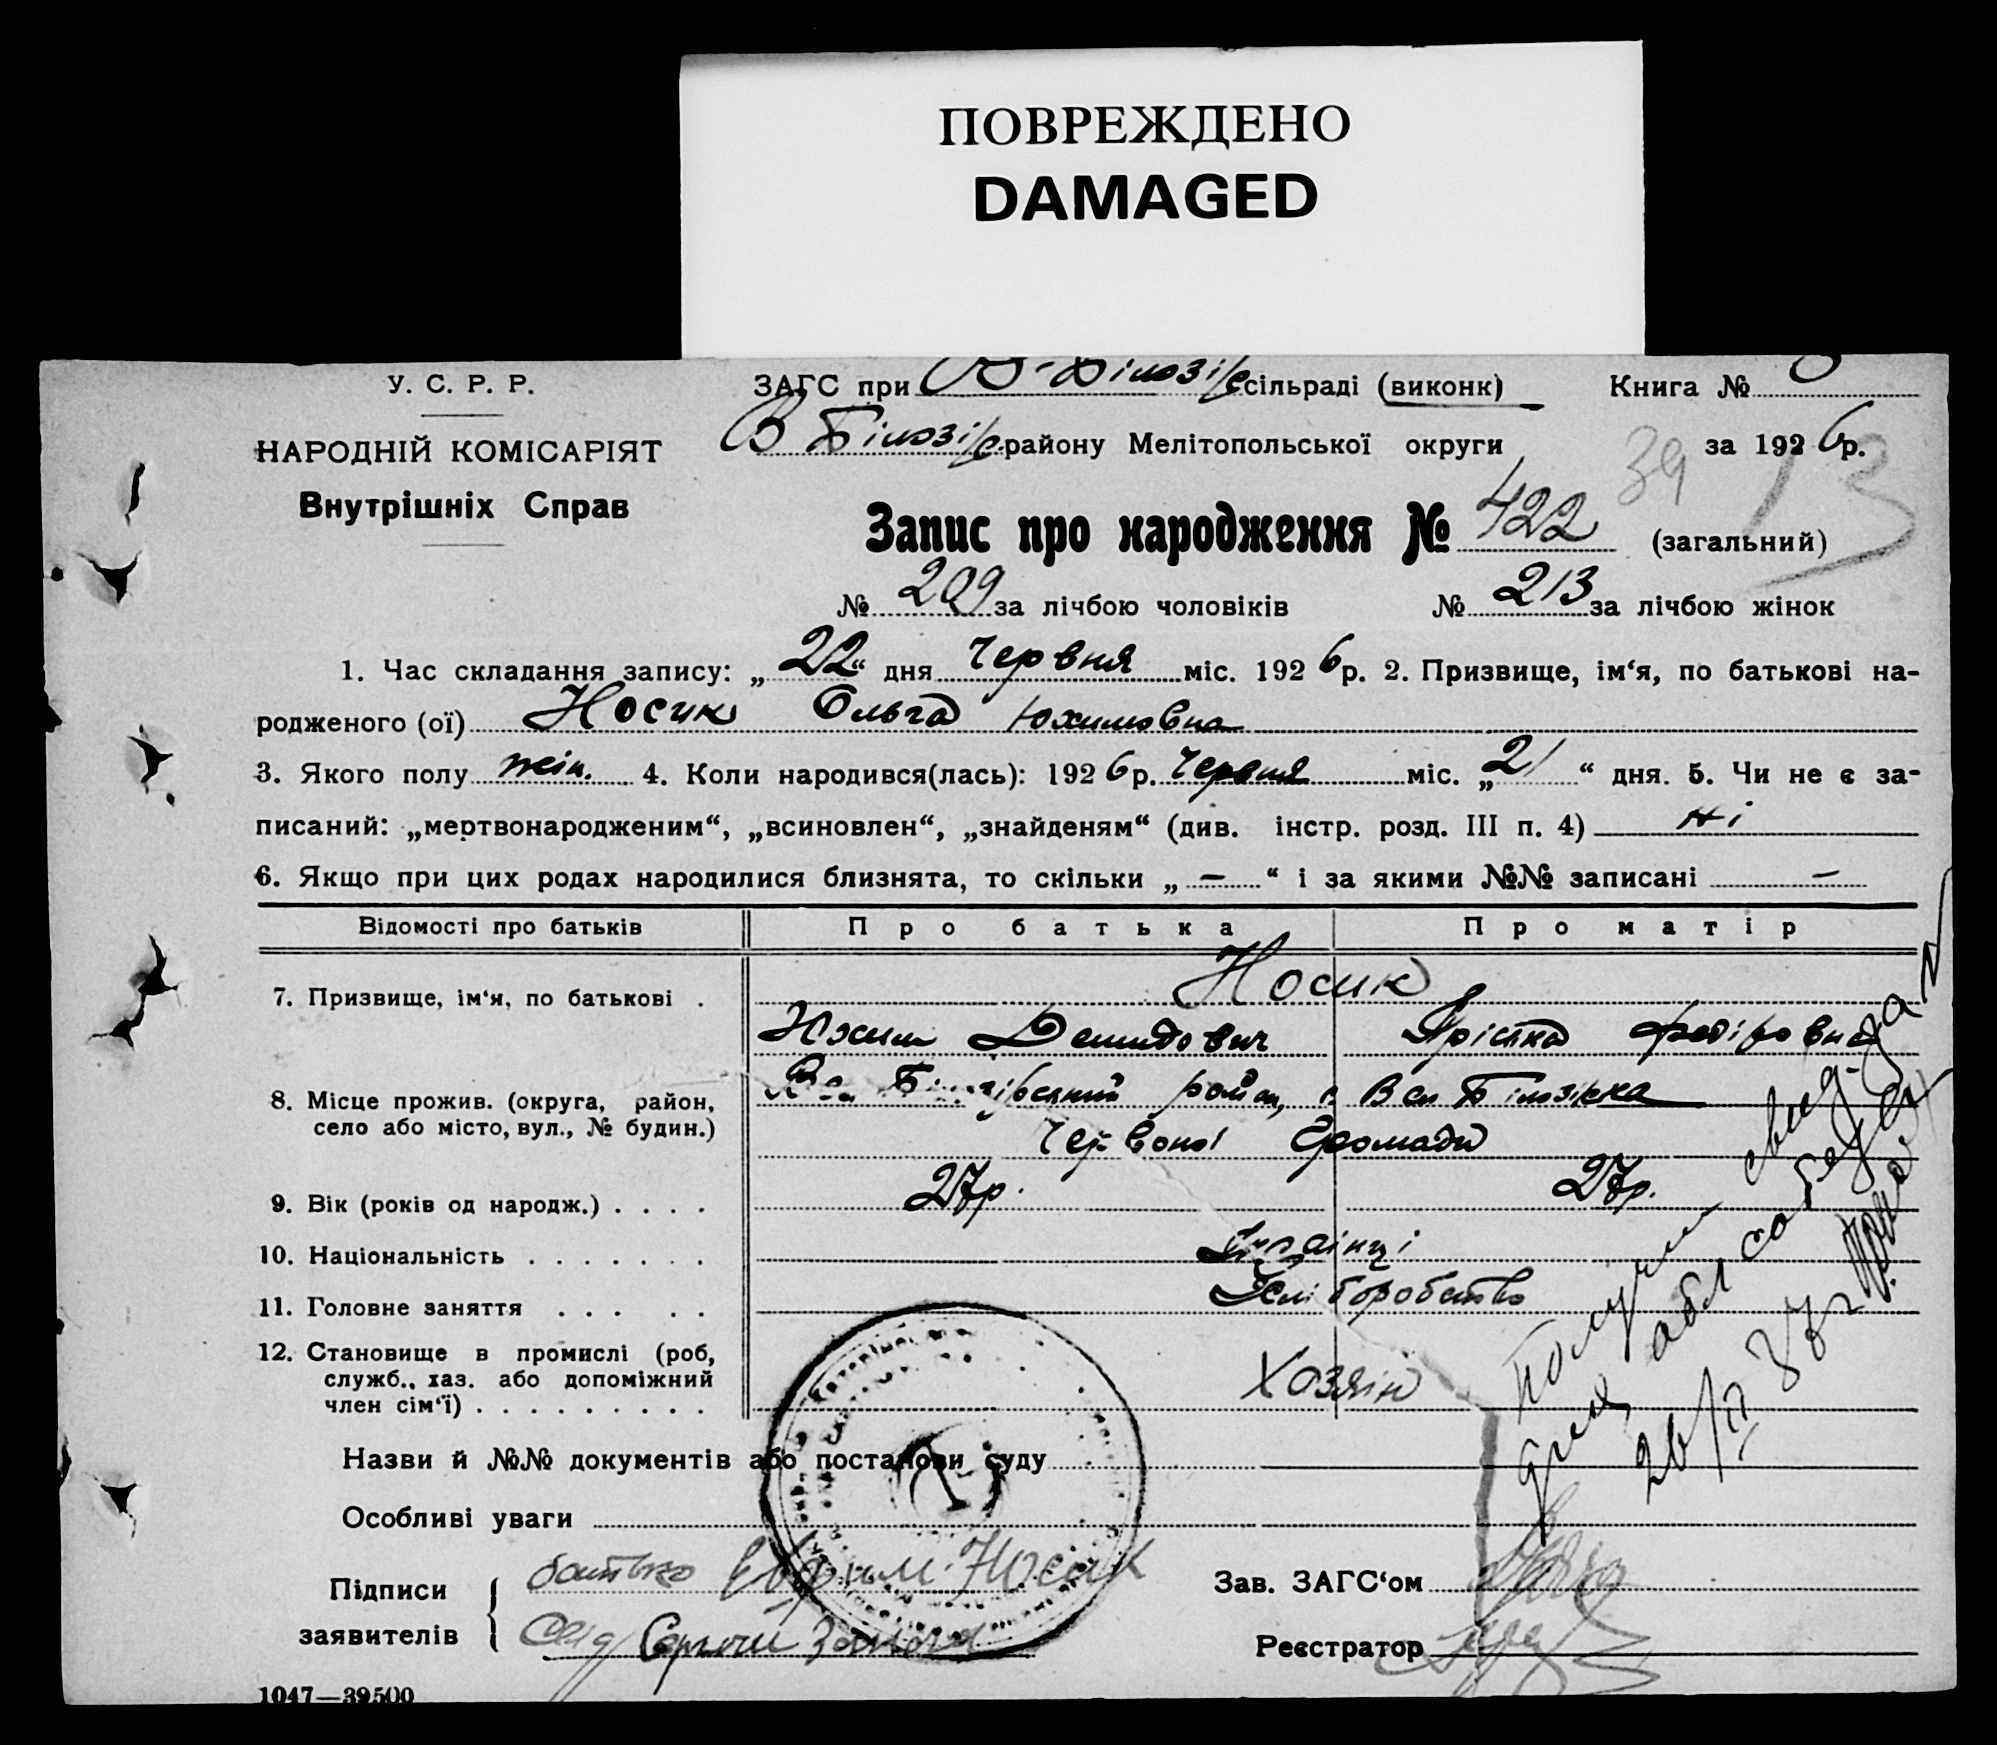 ПОВРЕЖДЕНО
DAMAGED
У. С. Р. Р.
НАРОДНІЙ КОМІСАРІЯТ
Внутрішніх Справ
ЗАГС при В-Білозір сільраді (виконк) Книга №
В Білозір району Мелітопольської округи за 1926р.
39 13
Запис про народження № 422 (загальний)
№ 209 за лічбою чоловіків № 213 за лічбою жінок
1. Час складання запису: „22“ дня Червня міс. 1926р. 2. Призвище, ім‘я, по батькові на-
родженого (ої) Носик Ольга Юхимовна
3. Якого полу жін. 4. Коли народився(лась): 1926р. Червня міс. „21“ дня. 5. Чи не є за-
писаний: „мертвонародженим“, „всиновлен“, „знайденям“ (див. інстр. розд. III п. 4) ні
6. Якщо при цих родах народилися близнята, то скільки „ — “ і за якими №№ записані —
Відомості про батьків Про батька Про матір
7. Призвище, ім‘я, по батькові . Носик
Юхим Демидович Христя Федіровна
8. Місце прожив. (округа, район, Білозірський район, с. Вел Білозірка
село або місто, вул., № будин.) Червоної Громади
9. Вік (років од народж.) . . . . 27р. 27р.
10. Національність . . . . . . . Українці
11. Головне заняття . . . . . Хліборобство
12. Становище в промислі (роб,
служб., хаз. або допоміжний Хозяін
член сім‘ї) . . . . . . . . .
Назви й №№ документів або постанови суду
Особливі уваги
Підписи батько Ефим Носик Зав. ЗАГС‘ом
заявителів Сергей Реєстратор
1047—39500